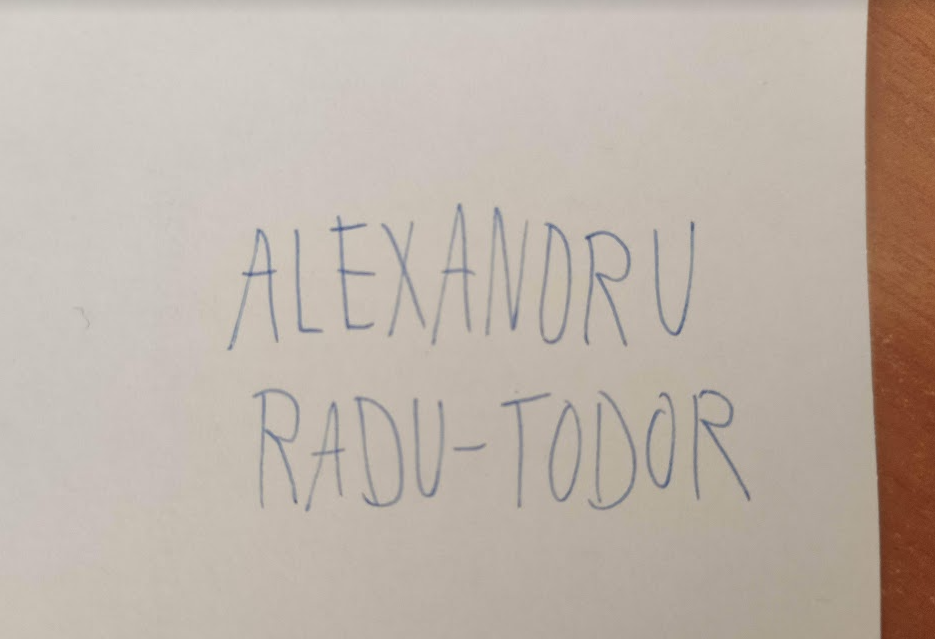 ALEXANDRU
RADU-TODOR